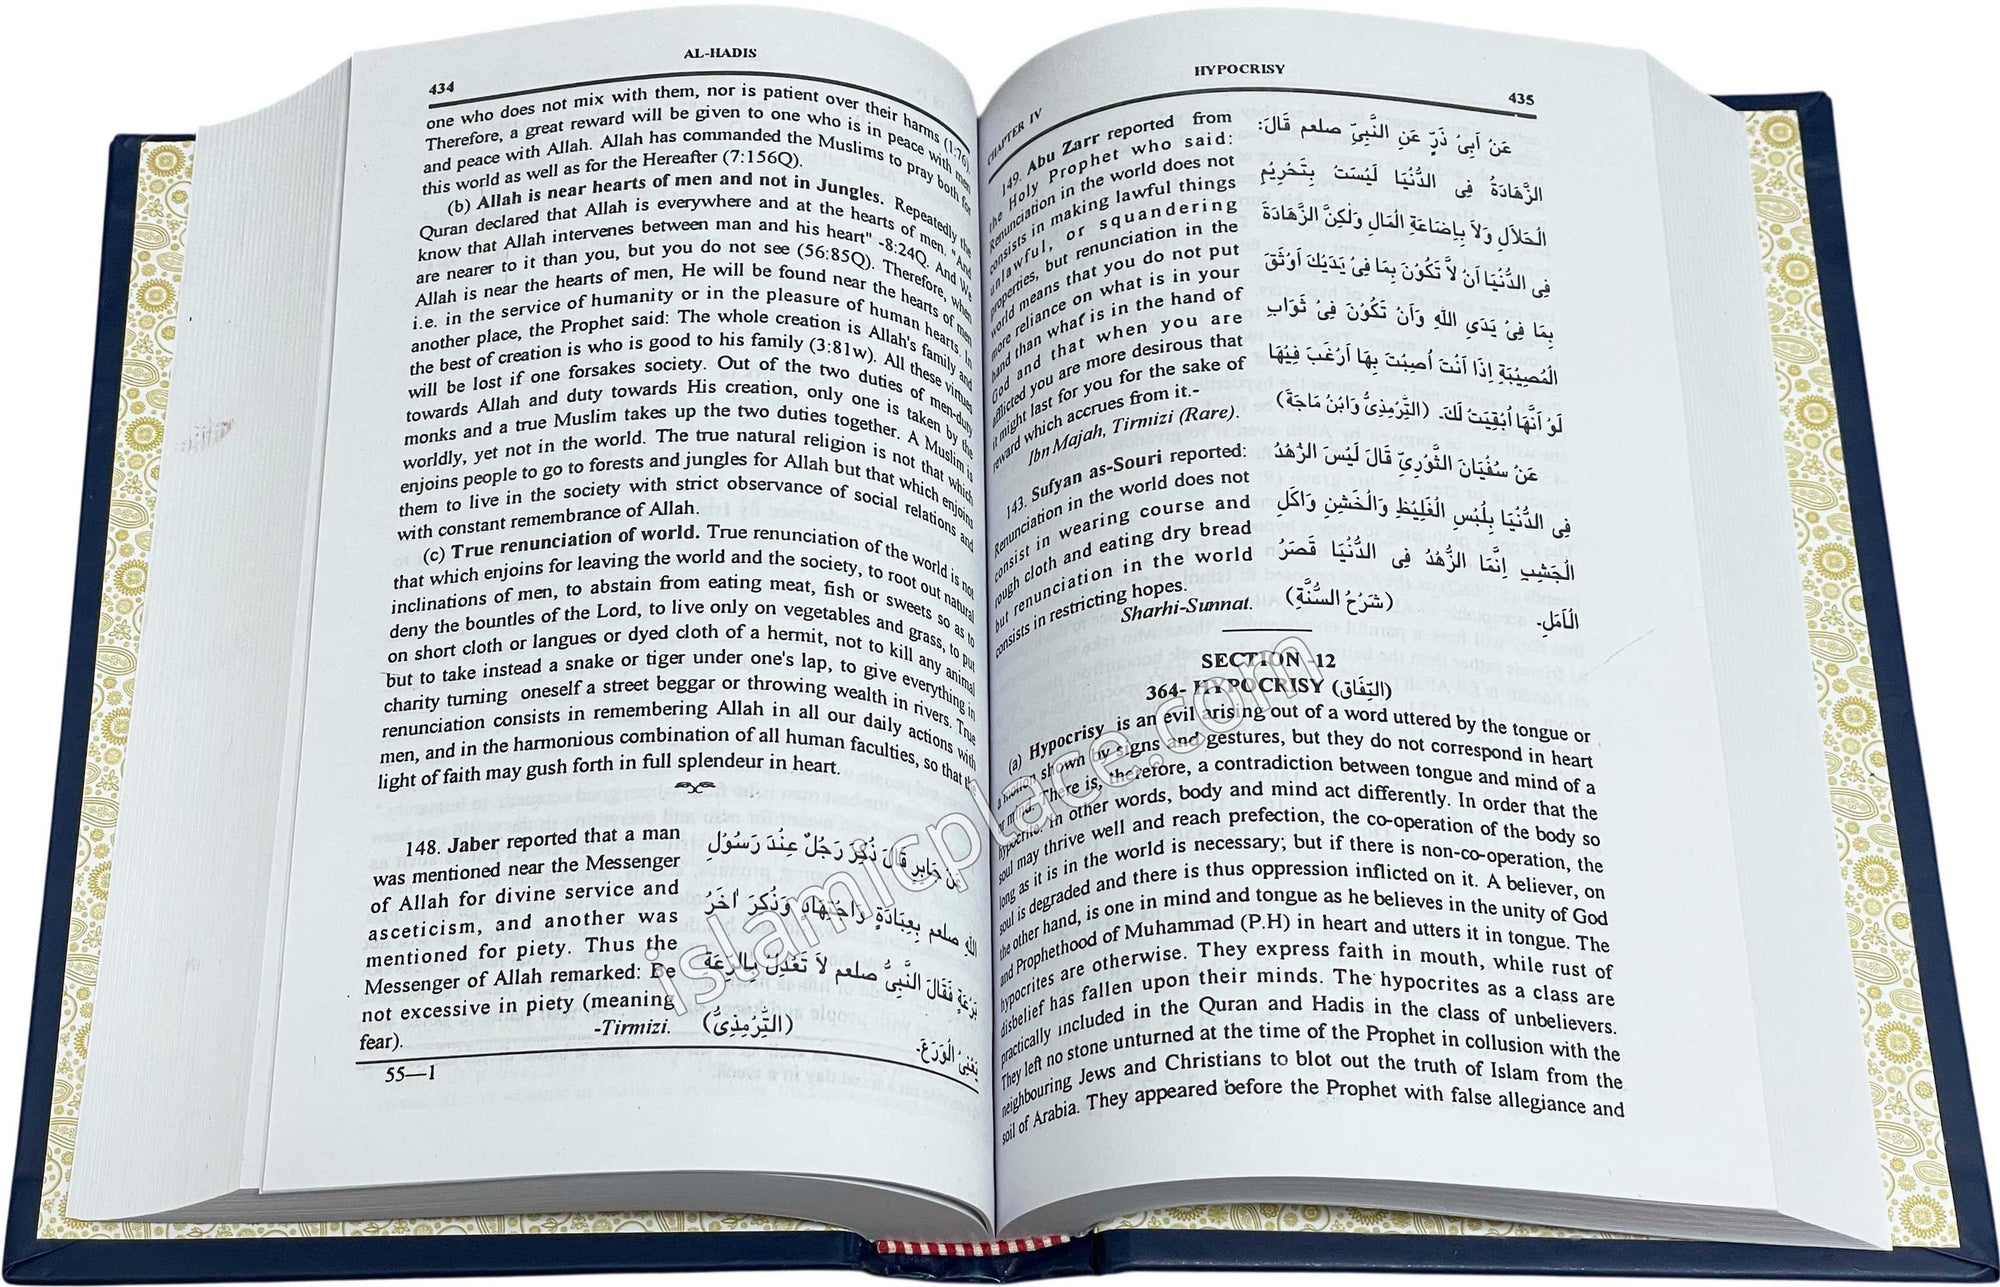 AL-HADIS
434
one who does not mix with them, nor is patient over their harms (1:76).
Therefore, a great reward will be given to one who is in peace with men
and peace with Allah. Allah has commanded the Muslims to pray both for
this world as well as for the Hereafter (7:156Q).
(b) Allah is near hearts of men and not in Jungles. Repeatedly the
Quran declared that Allah is everywhere and at the hearts of men. "And
know that Allah intervenes between man and his heart" -8:24Q. And We
are nearer to it than you, but you do not see (56:85Q). Therefore, when
Allah is near the hearts of men, He will be found near the hearts of men
i.e. in the service of humanity or in the pleasure of human hearts. In
another place, the Prophet said: The whole creation is Allah's family and
the best of creation is who is good to his family (3:81w). All these virtues
will be lost if one forsakes society. Out of the two duties of men-duty
towards Allah and duty towards His creation, only one is taken by the
monks and a true Muslim takes up the two duties together. A Muslim is
worldly, yet not in the world. The true natural religion is not that which
enjoins people to go to forests and jungles for Allah but that which enjoins
them to live in the society with strict observance of social relations and
with constant remembrance of Allah.
(c) True renunciation of world. True renunciation of the world is not
that which enjoins for leaving the world and the society, to root out natural
inclinations of men, to abstain from eating meat, fish or sweets so as to
deny the bountles of the Lord, to live only on vegetables and grass, to put
on short cloth or langues or dyed cloth of a hermit, not to kill any animal
but to take instead a snake or tiger under one's lap, to give everything in
charity turning oneself a street beggar or throwing wealth in rivers. True
renunciation consists in remembering Allah in all our daily actions with
men, and in the harmonious combination of all human faculties, so that the
light of faith may gush forth in full splendeur in heart.
148. Jaber reported that a man
was mentioned near the Messenger
of Allah for divine service and
asceticism, and another was
mentioned for piety. Thus the
Messenger of Allah remarked: Be
not excessive in piety (meaning
fear). -Tirmizi.
عَنْ جَابِرٍ قَالَ ذُكِرَ رَجُلٌ عِنْدَ رَسُوْلِ
اللهِ صلعم بِعِبَادَةٍ وَّاجْتِهَادٍ وَذُكِرَ اٰخَرُ
بِرَعَةٍ فَقَالَ النَّبِىُّ صلعم لاَ تَعْدِلْ بِالرِّعَةِ
يَعْنِىْ الْوَرَعَ- (التِّرْمِذِىُّ)
55—1
HYPOCRISY
CHAPTER IV
435
149. Abu Zarr reported from
the Holy Prophet who said:
Renunciation in the world does not
consists in making lawful things
unlawful, or squandering
properties, but renunciation in the
world means that you do not put
more reliance on what is in your
hand than what is in the hand of
God and that when you are
afflicted you are more desirous that
it might last for you for the sake of
reward which accrues from it.-
Ibn Majah, Tirmizi (Rare).
عَنْ اَبِىْ ذَرٍّ عَنِ النَّبِىِّ صلعم قَالَ:
الزَّهَادَةُ فِى الدُّنْيَا لَيْسَتْ بِتَحْرِيْمِ
الْحَلاَلِ وَلاَ بِاِضَاعَةِ الْمَالِ وَلٰكِنَّ الزَّهَادَةَ
فِى الدُّنْيَا اَنْ لاَّ تَكُوْنَ بِمَا فِىْ يَدَيْكَ اَوْثَقَ
بِمَا فِىْ يَدَىِ اللهِ وَاَنْ تَكُوْنَ فِىْ ثَوَابِ
الْمُصِيْبَةِ اِذَا اَنْتَ اُصِبْتَ بِهَا اَرْغَبَ فِيْهَا
لَوْ اَنَّهَا اُبْقِيَتْ لَكَ- (التِّرْمِذِىُّ وَابْنُ مَاجَةَ)
143. Sufyan as-Souri reported:
Renunciation in the world does not
consist in wearing course and
rough cloth and eating dry bread
but renunciation in the world
consists in restricting hopes.
Sharhi-Sunnat.
عَنْ سُفْيَانَ الثَّوْرِىِّ قَالَ لَيْسَ الزُّهْدُ
فِى الدُّنْيَا بِلُبْسِ الْغَلِيْظِ وَالْخَشِنِ وَاَكْلِ
الْجَشِبِ اِنَّمَا الزُّهْدُ فِى الدُّنْيَا قَصَرُ
الْاَمَلِ- (شَرْحُ السُّنَّةِ)
SECTION -12
364- HYPOCRISY (النِّفَاق)
(a) Hypocrisy is an evil arising out of a word uttered by the tongue or
a motion shown by signs and gestures, but they do not correspond in heart
or mind. There is, therefore, a contradiction between tongue and mind of a
hypocrite. In other words, body and mind act differently. In order that the
soul may thrive well and reach prefection, the co-operation of the body so
long as it is in the world is necessary; but if there is non-co-operation, the
soul is degraded and there is thus oppression inflicted on it. A believer, on
the other hand, is one in mind and tongue as he believes in the unity of God
and Prophethood of Muhammad (P.H) in heart and utters it in tongue. The
hypocrites are otherwise. They express faith in mouth, while rust of
disbelief has fallen upon their minds. The hypocrites as a class are
practically included in the Quran and Hadis in the class of unbelievers.
They left no stone unturned at the time of the Prophet in collusion with the
neighbouring Jews and Christians to blot out the truth of Islam from the
soil of Arabia. They appeared before the Prophet with false allegiance and
islamicplace.com